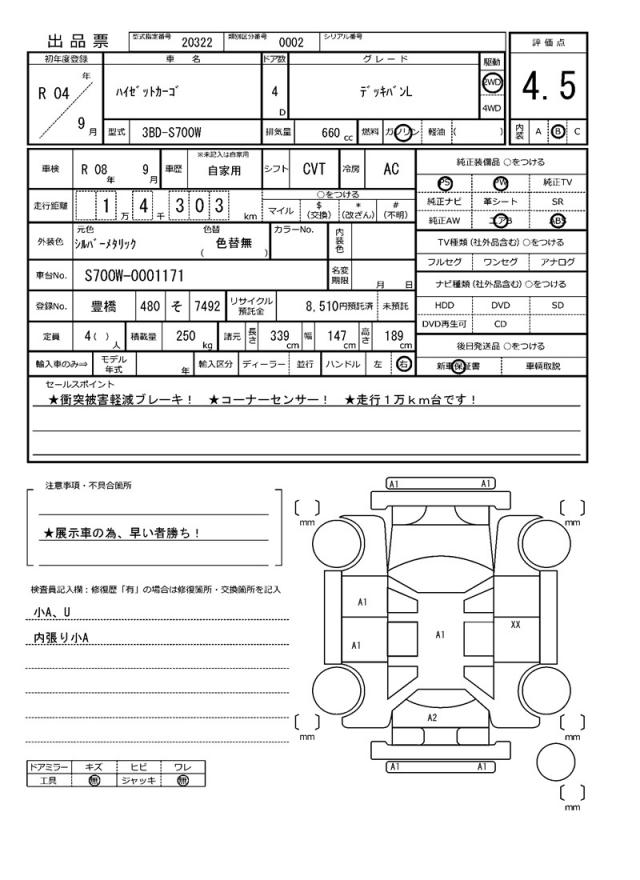 出品票
型式指定番号 20322 類別区分番号 0002 シリアル番号
評価点
4.5
内装 A B C
初年度登録 車名 ドア数 グレード 駆動
R 04年 9月
ハイゼットカーゴ 4D デッキバンL 2WD
4WD
型式 3BD-S700W 排気量 660cc 燃料 ガソリン 軽油 ( )
車検 R 08年 9月 車歴 ※未記入は自家用 自家用 シフト CVT 冷房 AC
走行距離 1万4千303km
○をつける
マイル $(交換) *(改ざん) #(不明)
外装色 元色 シルバーメタリック 色替 ( 色替無 ) カラーNo. 内装色
車台No. S700W-0001171 名変期限 月 日
登録No. 豊橋 480 そ 7492 リサイクル預託金 8,510円預託済 未預託
定員 4( )人 積載量 250kg 諸元 長さ 339cm 幅 147cm 高さ 189cm
輸入車のみ⇒ モデル年式 年 輸入区分 ディーラー 並行 ハンドル 左 右
純正装備品 ○をつける
PS PW 純正TV
純正ナビ 革シート SR
純正AW エアB ABS
TV種類(社外品含む) ○をつける
フルセグ ワンセグ アナログ
ナビ種類(社外品含む) ○をつける
HDD DVD SD
DVD再生可 CD
後日発送品 ○をつける
新車保証書 車輌取説
セールスポイント
★衝突被害軽減ブレーキ! ★コーナーセンサー! ★走行1万km台です!
注意事項・不具合箇所
★展示車の為、早い者勝ち!
検査員記入欄:修復歴「有」の場合は修復箇所・交換箇所を記入
小A、U
内張り小A
ドアミラー キズ ヒビ ワレ
工具 無 ジャッキ 無
A1 A1
mm mm
A1
XX
A1 A1
A2
mm mm
A1 A1
mm